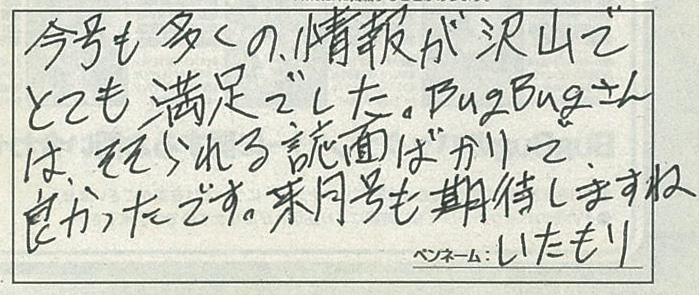 今号も多くの、情報が沢山で
とても満足でした。BugBugさん
は、そそられる誌面ばかりで
良かったです。来月号も期待しますね
ペンネーム：いたもり